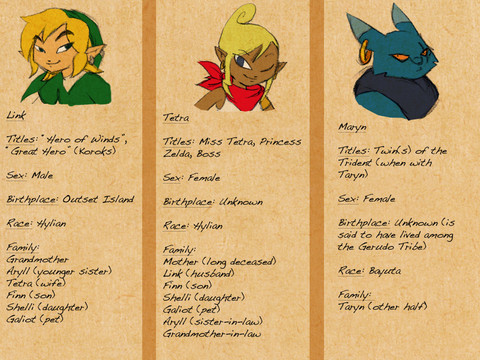 Link
Titles: "Hero of Winds",
"Great Hero" (Koroks)
Sex: Male
Birthplace: Outset Island
Race: Hylian
Family:
Grandmother
Aryll (younger sister)
Tetra (wife)
Finn (son)
Shelli (daughter)
Galiot (pet)
Tetra
Titles: Miss Tetra, Princess
Zelda, Boss
Sex: Female
Birthplace: Unknown
Race: Hylian
Family:
Mother (long deceased)
Link (husband)
Finn (son)
Shelli (daughter)
Galiot (pet)
Aryll (sister-in-law)
Grandmother-in-law
Maryn
Titles: Twin(s) of the
Trident (when with
Taryn)
Sex: Female
Birthplace: Unknown (is
said to have lived among
the Gerudo Tribe)
Race: Bayuta
Family:
Taryn (other half)